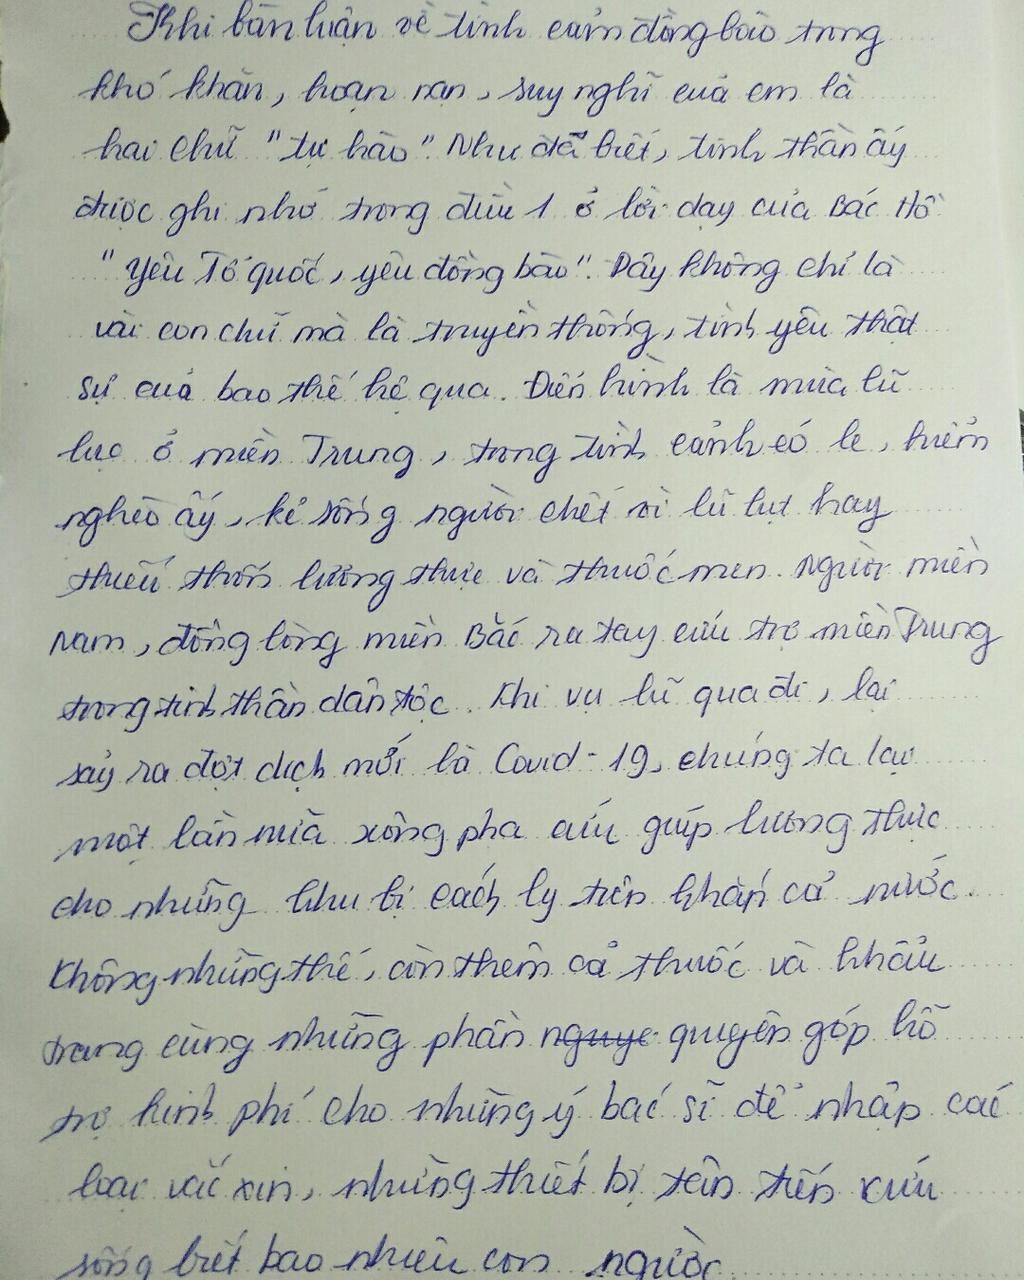 Khi bàn luận về tình cảm đồng bào trong
khó khăn, hoạn nạn, suy nghĩ của em là
hai chữ "tự hào". Như đã biết, tinh thần ấy
được ghi nhớ trong điều 1 ở lời dạy của Bác Hồ
"Yêu Tổ quốc, yêu đồng bào". Đây không chỉ là
vài con chữ mà là truyền thống, tình yêu thật
sự của bao thế hệ qua. Điển hình là mùa lũ
lục ở miền Trung, trong tình cảnh eó le, hiểm
nghèo ấy, kẻ sống người chết vì lũ lụt hay
thiếu thốn lương thực và thuốc men. Người miền
Nam, đồng lòng miền Bắc ra tay cứu trợ miền Trung
trong tinh thần dân tộc. Khi vụ lũ qua đi, lại
sảy ra đợt dịch mới là Covid-19, chúng ta lại
một lần nữa xông pha cứu giúp lương thực
cho những khu bị cách ly trên khắp cả nước.
Không những thế, còn thêm cả thuốc và khẩu
trang cùng những phần quyên góp hỗ
trợ kinh phí cho những y bác sĩ để nhập các
loại vắc xin, những thiết bị tiên tiến cứu
sống biết bao nhiêu con người.